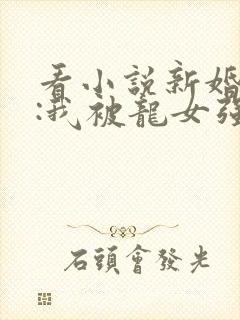 看小説新婚
:我被龍女強
石頭會發光